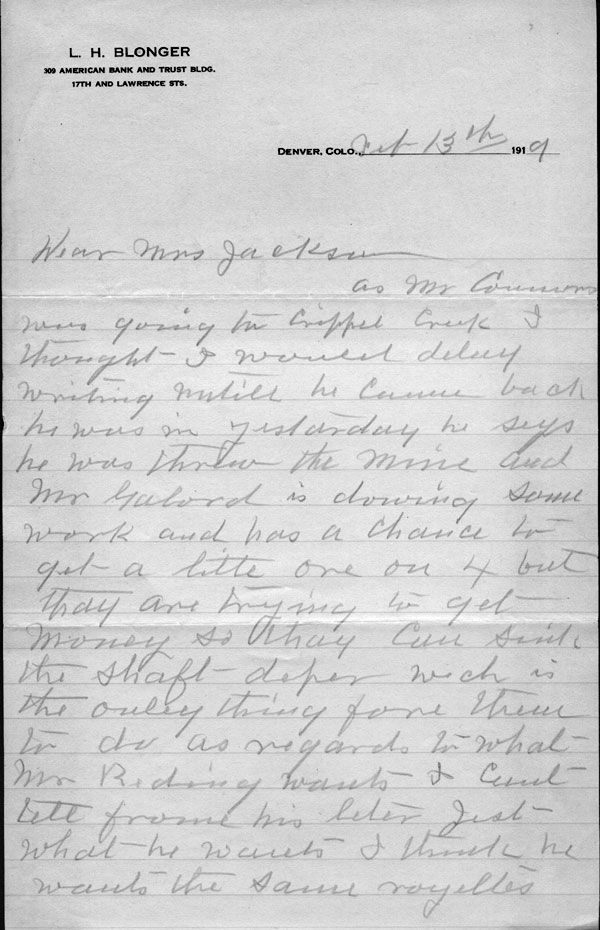 L. H. BLONGER
309 AMERICAN BANK AND TRUST BLDG.
17TH AND LAWRENCE STS.
DENVER, COLO., 13th 1919
Dear Mrs Jackson
as Mr Connors
was going to Crippel Creek I
thought I would delay
writing untill he Came back
he was in yestarday he seys
he was threw the mine and
Mr Galord is dowing some
work and has a chance to
get a litte ore on 4 but
thay are trying to get
money so thay can sink
the shaft deper wich is
the onley thing fore them
to do as regards to what
Mr Reding wants I Cant
tell frome his leter Just
what he wants I think he
wants the same royeltes